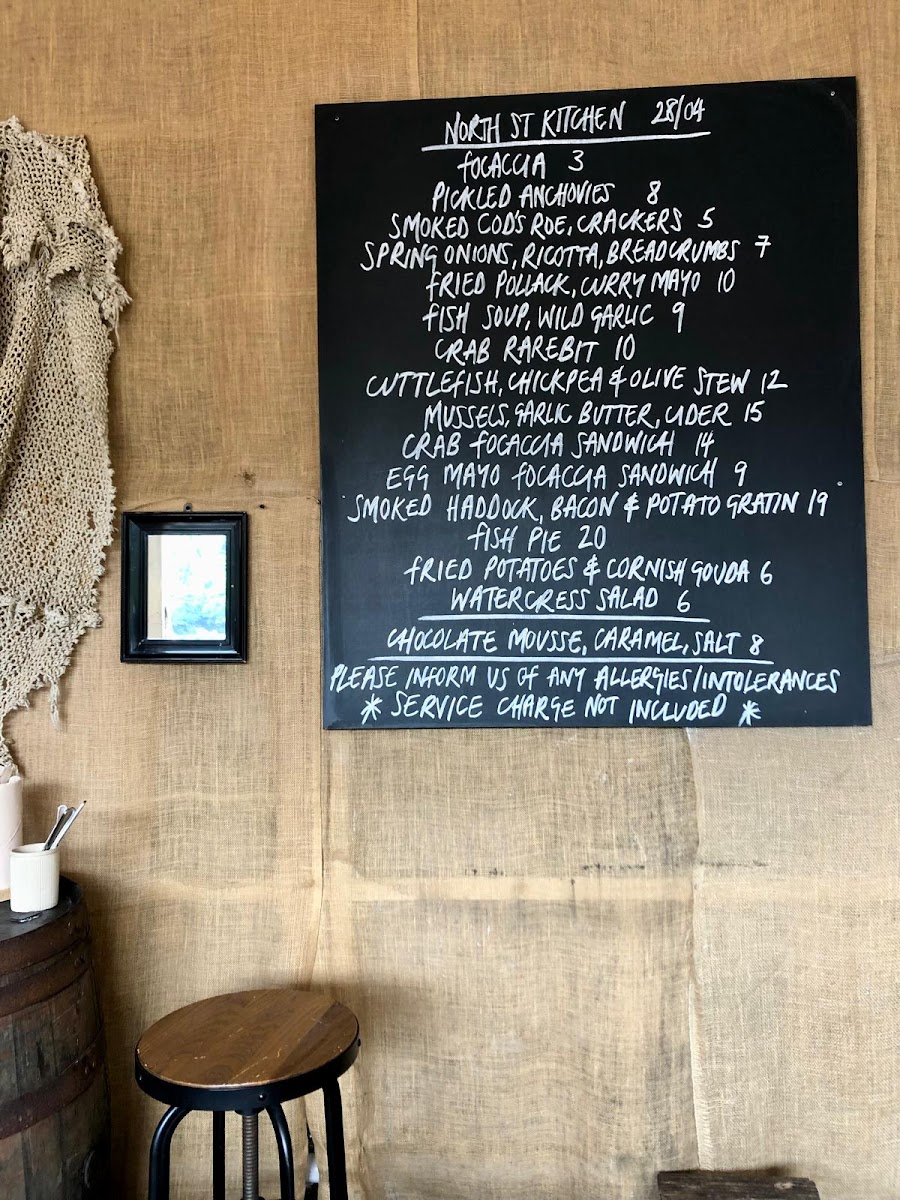 NORTH ST KITCHEN 28/04
FOCACCIA 3
PICKLED ANCHOVIES 8
SMOKED COD'S ROE, CRACKERS 5
SPRING ONIONS, RICOTTA, BREADCRUMBS 7
FRIED POLLACK, CURRY MAYO 10
FISH SOUP, WILD GARLIC 9
CRAB RAREBIT 10
CUTTLEFISH, CHICKPEA & OLIVE STEW 12
MUSSELS, GARLIC BUTTER, CIDER 15
CRAB FOCACCIA SANDWICH 14
EGG MAYO FOCACCIA SANDWICH 9
SMOKED HADDOCK, BACON & POTATO GRATIN 19
FISH PIE 20
FRIED POTATOES & CORNISH GOUDA 6
WATERCRESS SALAD 6
CHOCOLATE MOUSSE, CARAMEL, SALT 8
PLEASE INFORM US OF ANY ALLERGIES/INTOLERANCES
* SERVICE CHARGE NOT INCLUDED *